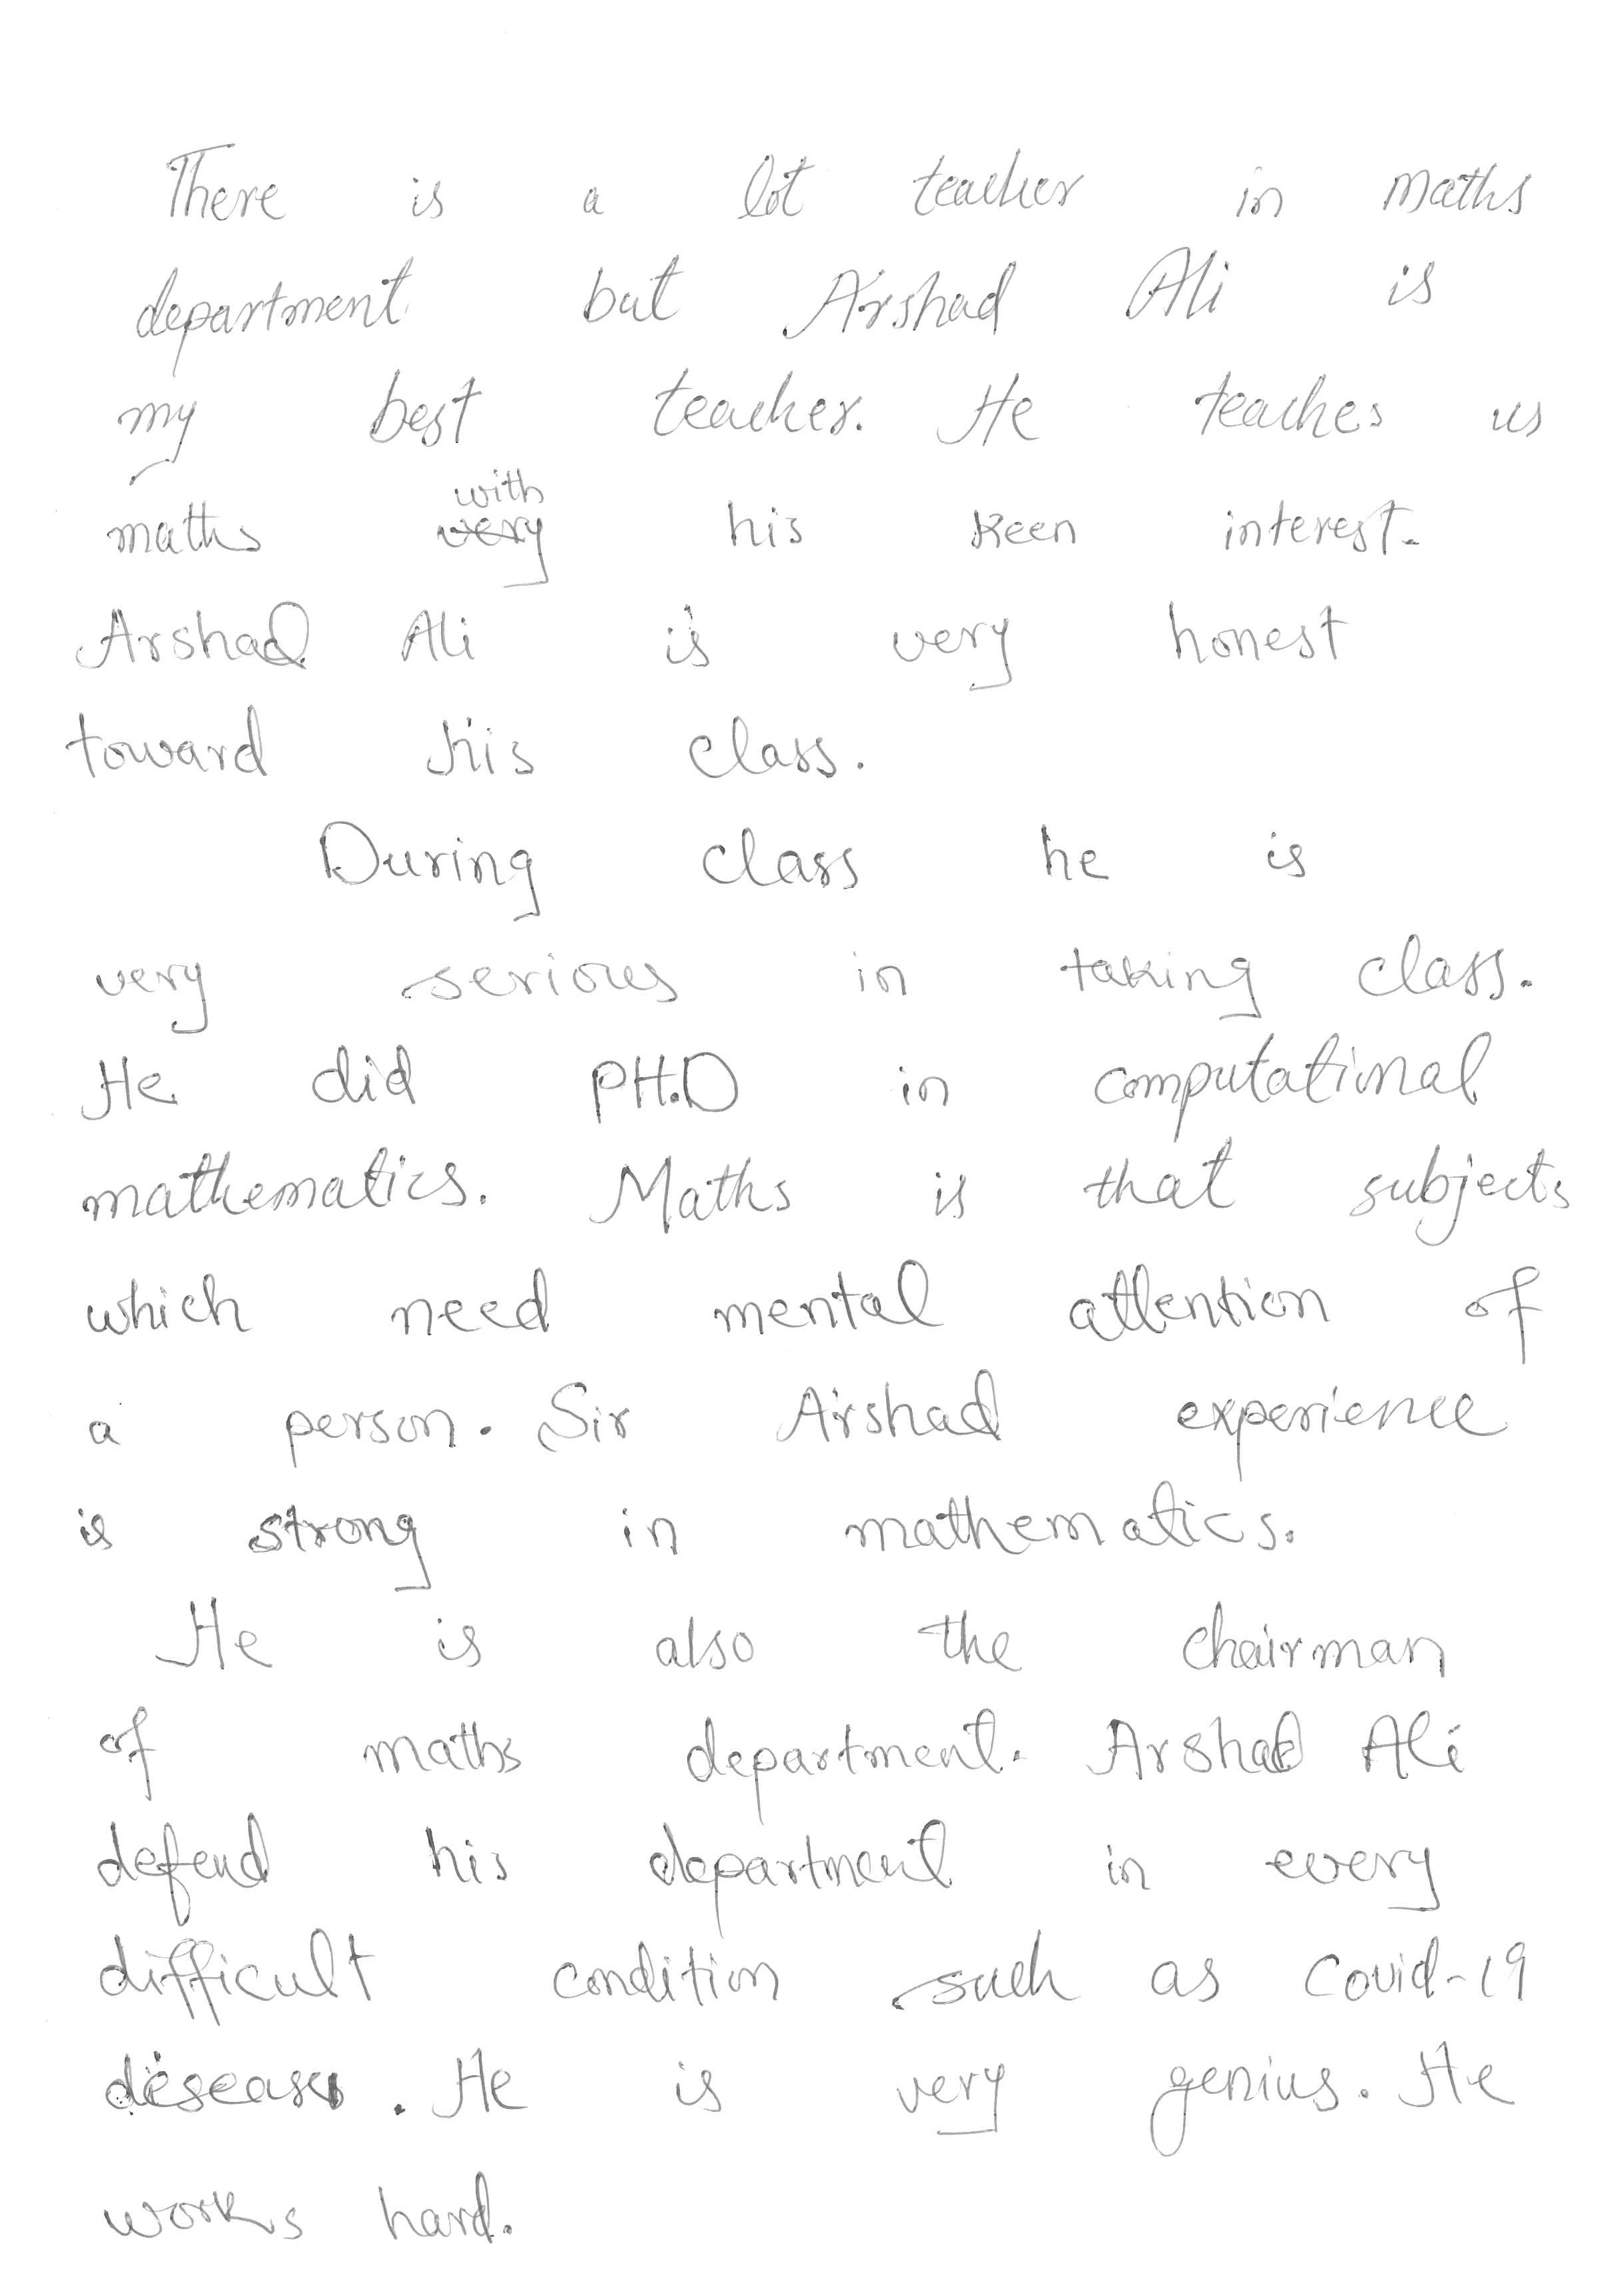 There is a lot teacher in maths
department but Arshad Ali is
my best teacher. He teaches us
maths with his keen interest.
Arshad Ali is very honest
toward his class.
During class he is
very serious in taking class.
He did PH.D in computational
mathematics. Maths is that subjects
which need mental attention of
a person. Sir Arshad experience
is strong in mathematics.
He is also the chairman
of maths department. Arshad Ali
defend his department in every
difficult condition such as Covid-19
. He is very genius. He
works hard.